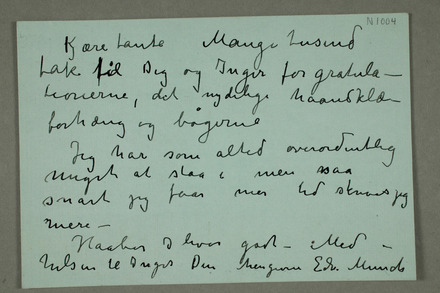 N 1004
Kjære tante Mange tusind
tak til Dig og Inger for gratula–
tionerne, det nydelige haandklæ–
forhæng og bøgerne
Jeg har som altid overordentlig
meget at staa i men saa
snart jeg faar mer tid skriver jeg
mere –
Haaber I har godt – Med –
hilsen til Inger Din hengivne Edv. Munch